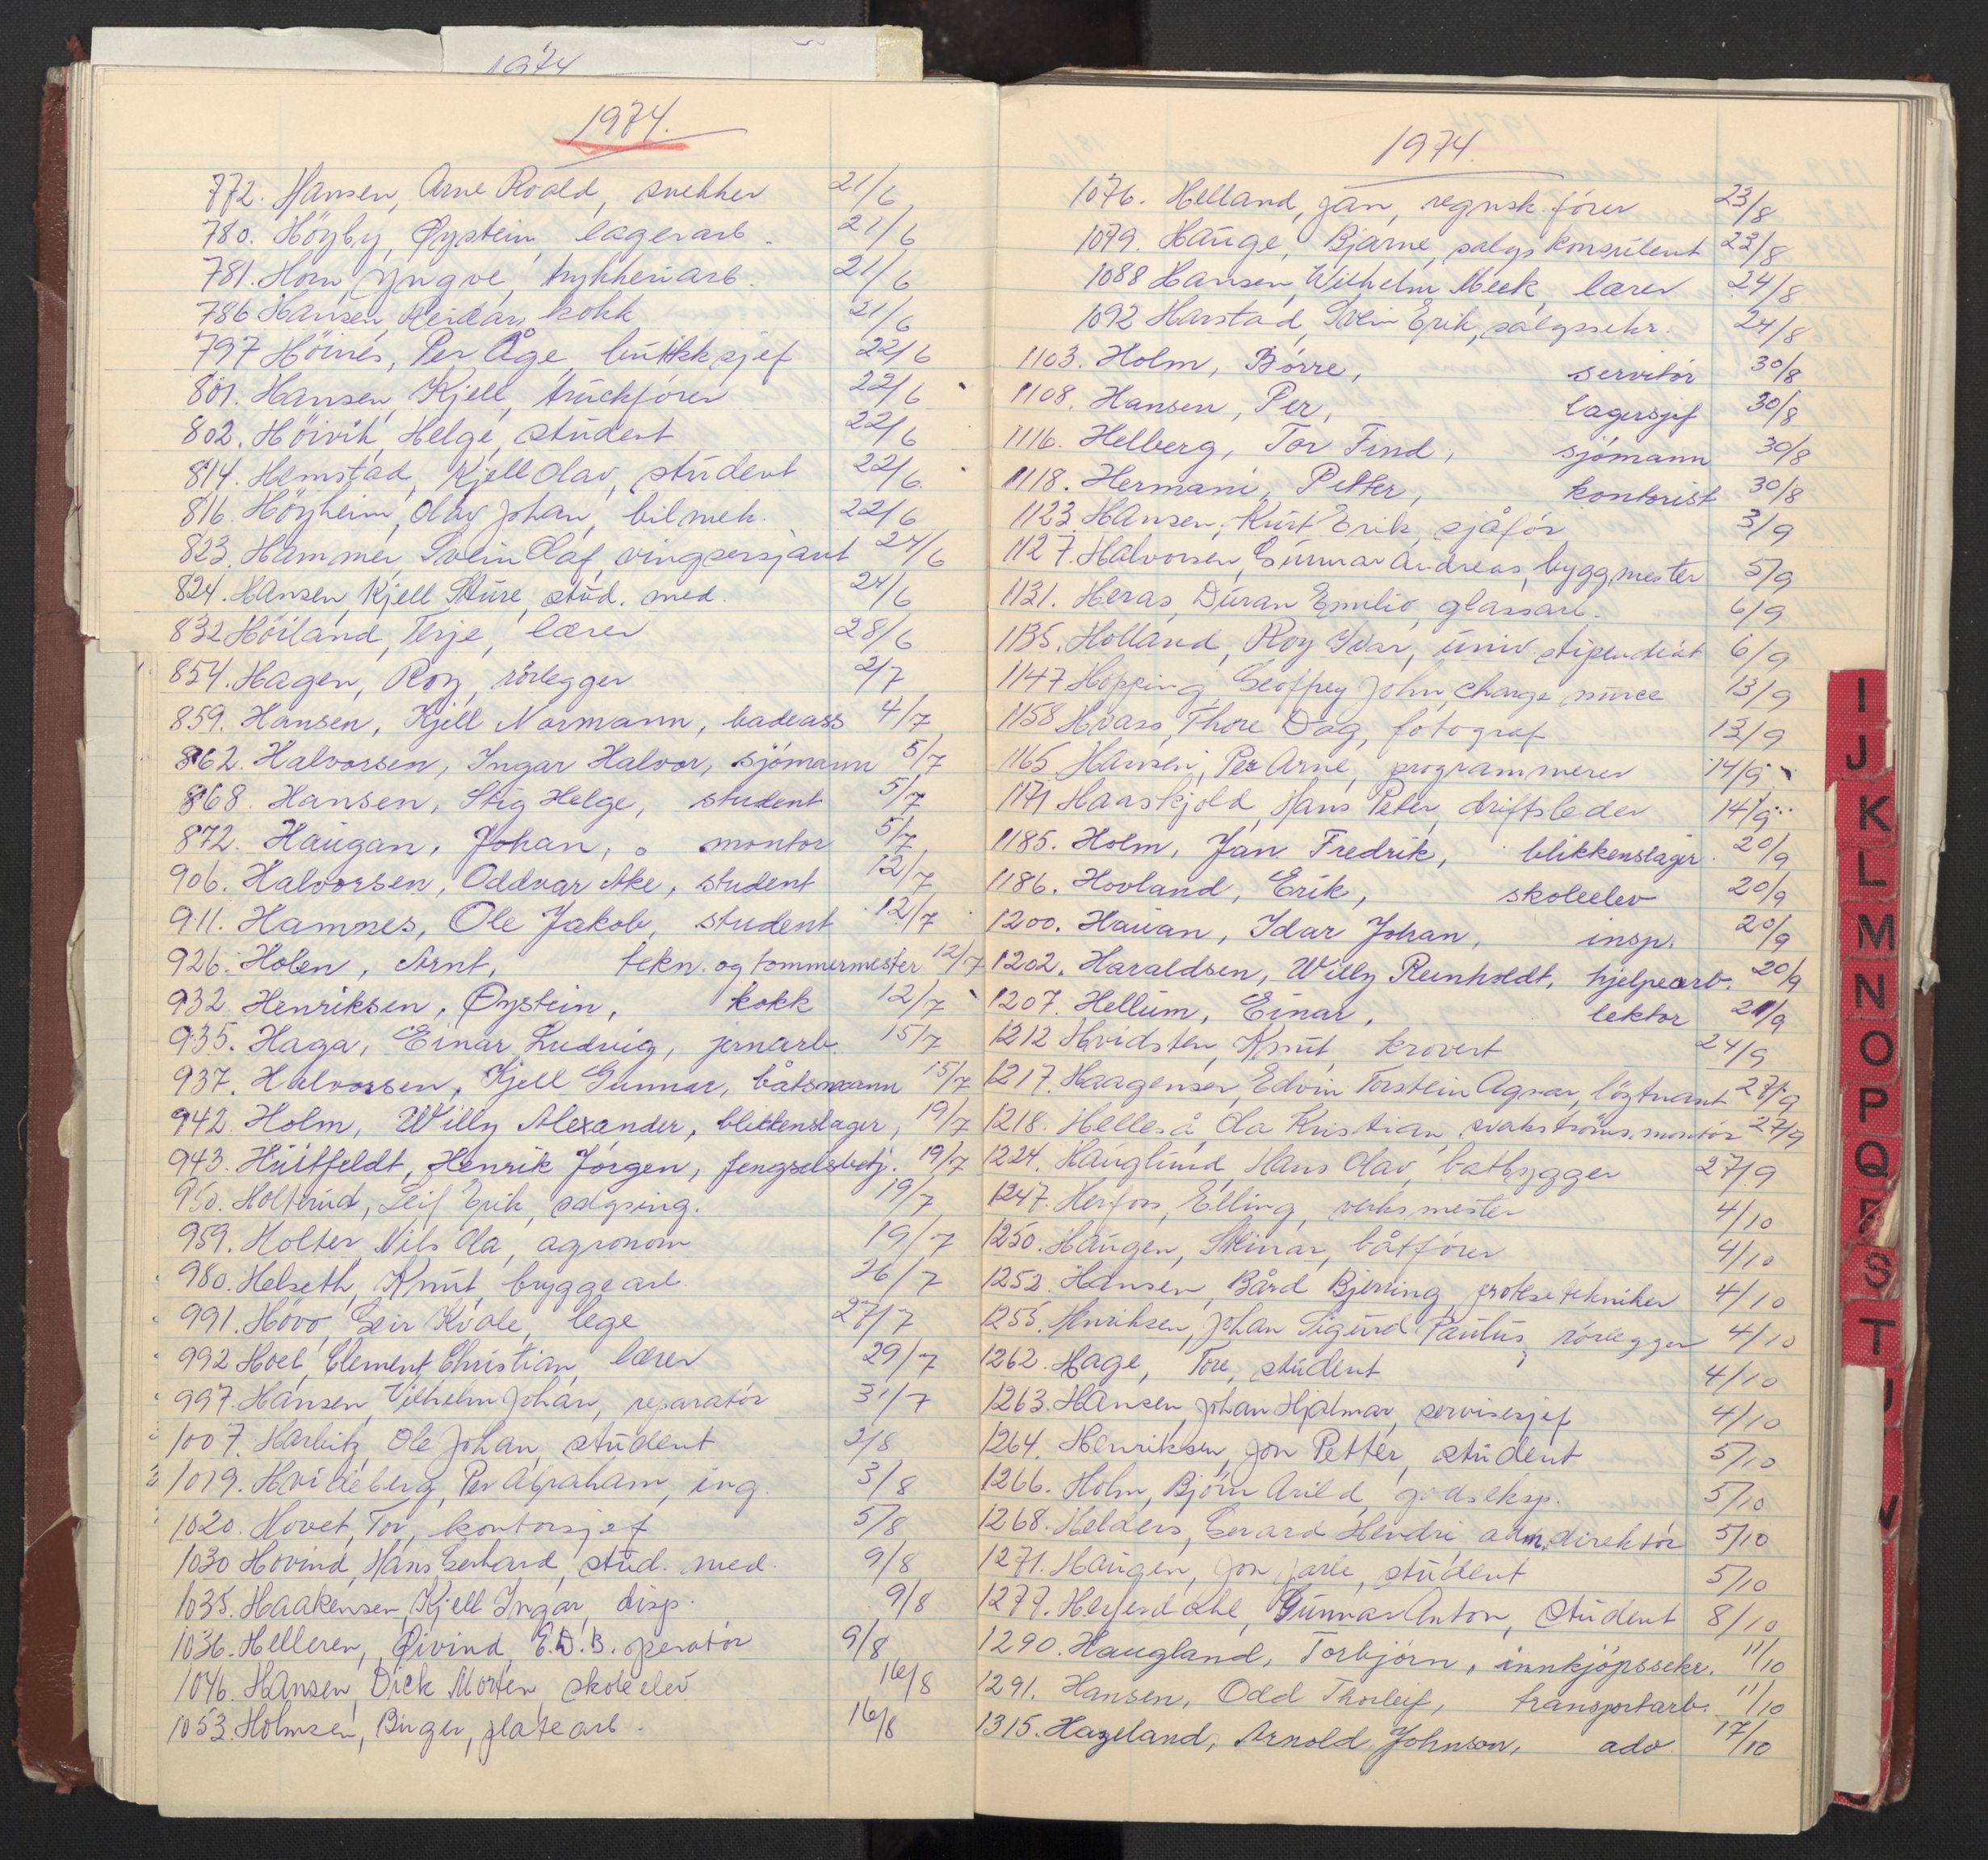 1974
1974.
772. Hansen, Arne Roald, snekker 21/6
780. Höyby, Øystein, lagerarb. 21/6
781. Horn, Yngve, trykkeriarb. 21/6
786 Hansen, Reidar, kokk 21/6
797 Höines, Per Åge, butikksjef 22/6
801. Hansen, Kjell, truckförer 22/6
802. Höivik, Helge, student 22/6
814. Hemstad, Kjell Olav, student 22/6
816. Höyheim, Olav Johan, bilmek. 22/6
823. Hammer, Svein Olaf, vingsersjant 24/6
824. Hansen, Kjell Sture, stud. med. 24/6
832 Höiland, Terje, lærer 28/6
854. Hagen, Roy, rörlegger 2/7
859. Hansen, Kjell Normann, badeass 4/7
862. Halvorsen, Ingar Halvor, sjömann 5/7
868. Hansen, Stig Helge, student 5/7
872. Haugan, Johan, montör 5/7
906. Halvorsen, Oddvar Åke, student 12/7
911. Hamnes, Ole Jakob, student 12/7
926. Holen, Arnt, tekn. og tømmermester 12/7
932 Henriksen, Øystein, kokk 12/7
935. Haga, Einar Ludvig, jernarb. 15/7
937. Halvorsen, Kjell Gunnar, båtsmann 15/7
942. Holm, Willy Alexander, blikkenslager, 19/7
943. Huitfeldt, Henrik Jörgen, fengselsbetj. 19/7
950. Holterud, Leif Erik, salgsing. 19/7
959. Holter, Nils Ola, agronom 19/7
980. Helseth, Knut, bryggearb. 26/7
991. Hovo, Geir Kvale, lege 27/7
992 Hoel, Clement Christian, lærer 29/7
997. Hansen, Vilhelm Johan, reparatör 31/7
1007. Harbitz, Ole Johan, student 2/8
1019. Hvideberg, Per Abraham, ing. 3/8
1020. Hovet, Tor, kontorsjef 5/8
1030 Hovind, Hans Gerhard, stud. med. 9/8
1035. Haakensen, Kjell Ingar, disp. 9/8
1036. Helleren, Øivind, E.D.B. operatör 9/8
1046. Hansen, Dick Morten, skoleelev 16/8
1053. Holmsen, Birger, platearb. 16/8
1974.
1076. Helland, Jan, regnsk. förer 23/8
1079. Hauge, Bjarne, salgskonsulent 23/8
1088 Hansen, Wilhelm Meek, lærer 24/8
1092 Harstad, Svein Erik, salgssekr. 24/8
1103. Holm, Börre, servitör 30/8
1108. Hansen, Per, lagersjef 30/8
1116. Helberg, Tor Find, sjömann 30/8
1118. Hermani, Petter, kontorist 30/8
1123 Hansen, Kurt Erik, sjåför 3/9
1127. Halvorsen, Gunnar Andreas, byggmester 5/9
1131. Heras, Duran Emilio, glassarb. 6/9
1135. Holland, Roy Ivar, univ. stipendiat 6/9
1147 Hopping, Geoffrey John, charge nurce 13/9
1158 Hvass, Thore Dag, fotograf 13/9
1165 Hansen, Per Arne, programmerer 14/9
1171 Haaskjold, Hans Peter, driftsleder 14/9
1185. Holm, Jan Fredrik, blikkenslager. 20/9
1186. Hovland, Erik, skoleelev 20/9
1200. Hauan, Idar Johan, insp. 20/9
1202. Haraldsen, Willy Reinholdt, hjelpearb. 20/9
1207. Hellum, Einar, lektor 21/9
1212 Hvidsten, Knut, krovert 24/9
1217. Haagensen, Edvin Torstein Agnar, löytnant 27/9
1218. Helleså, Ola Kristian, svakströms.montör 27/9
1224. Hauglund, Hans Olav, båtbygger 27/9
1247. Herfoss, Elling, verksmester 4/10
1250. Haugen, Steinar, båtförer 4/10
1252. Hansen, Bård Bjerring, protesetekniker 4/10
1255. Henriksen, Johan Sigurd Paulus, rörlegger 4/10
1262. Hage, Tore, student 4/10
1263. Hansen, Johan Hjalmar, servisesjef 4/10
1264. Henriksen, Jon Petter, student 5/10
1266. Holm, Björn Arild, godseksp. 5/10
1268. Helders, Gerard Hendri, adm.direktör 5/10
1271. Haugen, Jon Jarle, student 5/10
1279. Herfendahl, Gunnar Anton, student 8/10
1290. Haugland, Torbjörn, innkjöpssekr. 11/10
1291. Hansen, Odd Thorleif, transportarb. 11/10
1315. Hazeland, Arnold Johnson, adv. 17/10
I
J
K
L
M
N
O
P
Q
R
S
T
U
V